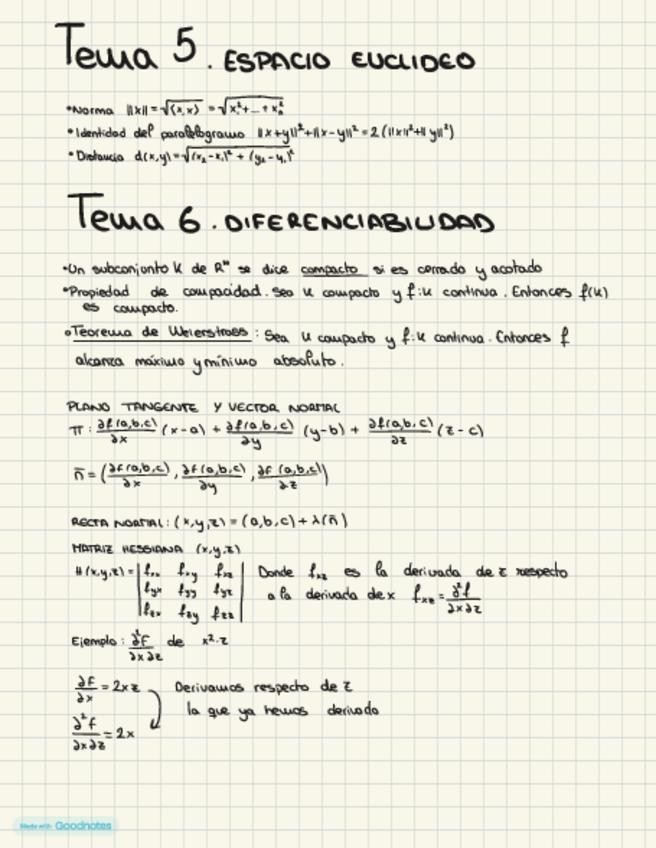 Tema 5. ESPACIO EUCLIDEO
•Norma ||x|| = √⟨x,x⟩ = √x₁²+...+xₙ²
•Identidad del paralelogramo ||x+y||²+||x-y||² = 2(||x||²+||y||²)
•Distancia d(x,y)=√(x₂-x₁)² + (y₂-y₁)²
Tema 6. DIFERENCIABILIDAD
•Un subconjunto K de Rⁿ se dice compacto si es cerrado y acotado
•Propiedad de compacidad. Sea K compacto y f:K continua. Entonces f(K)
es compacto.
•Teorema de Weierstrass: Sea K compacto y f:K continua. Entonces f
alcanza máximo y mínimo absoluto.
PLANO TANGENTE Y VECTOR NORMAL
π: ∂f(a,b,c)/∂x (x-a) + ∂f(a,b,c)/∂y (y-b) + ∂f(a,b,c)/∂z (z-c)
n̄ = (∂f(a,b,c)/∂x, ∂f(a,b,c)/∂y, ∂f(a,b,c)/∂z)
RECTA NORMAL: (x,y,z) = (a,b,c) + λ(n̄)
MATRIZ HESSIANA (x,y,z)
H(x,y,z) = | fxx fxy fxz | Donde fxz es la derivada de z respecto
| fyx fyy fyz | a la derivada de x fxz = ∂²f/∂x∂z
| fzx fzy fzz |
Ejemplo: ∂²f/∂x∂z de x²·z
∂f/∂x = 2xz Derivamos respecto de z
la que ya hemos derivado
∂²f/∂x∂z = 2x
Made with Goodnotes